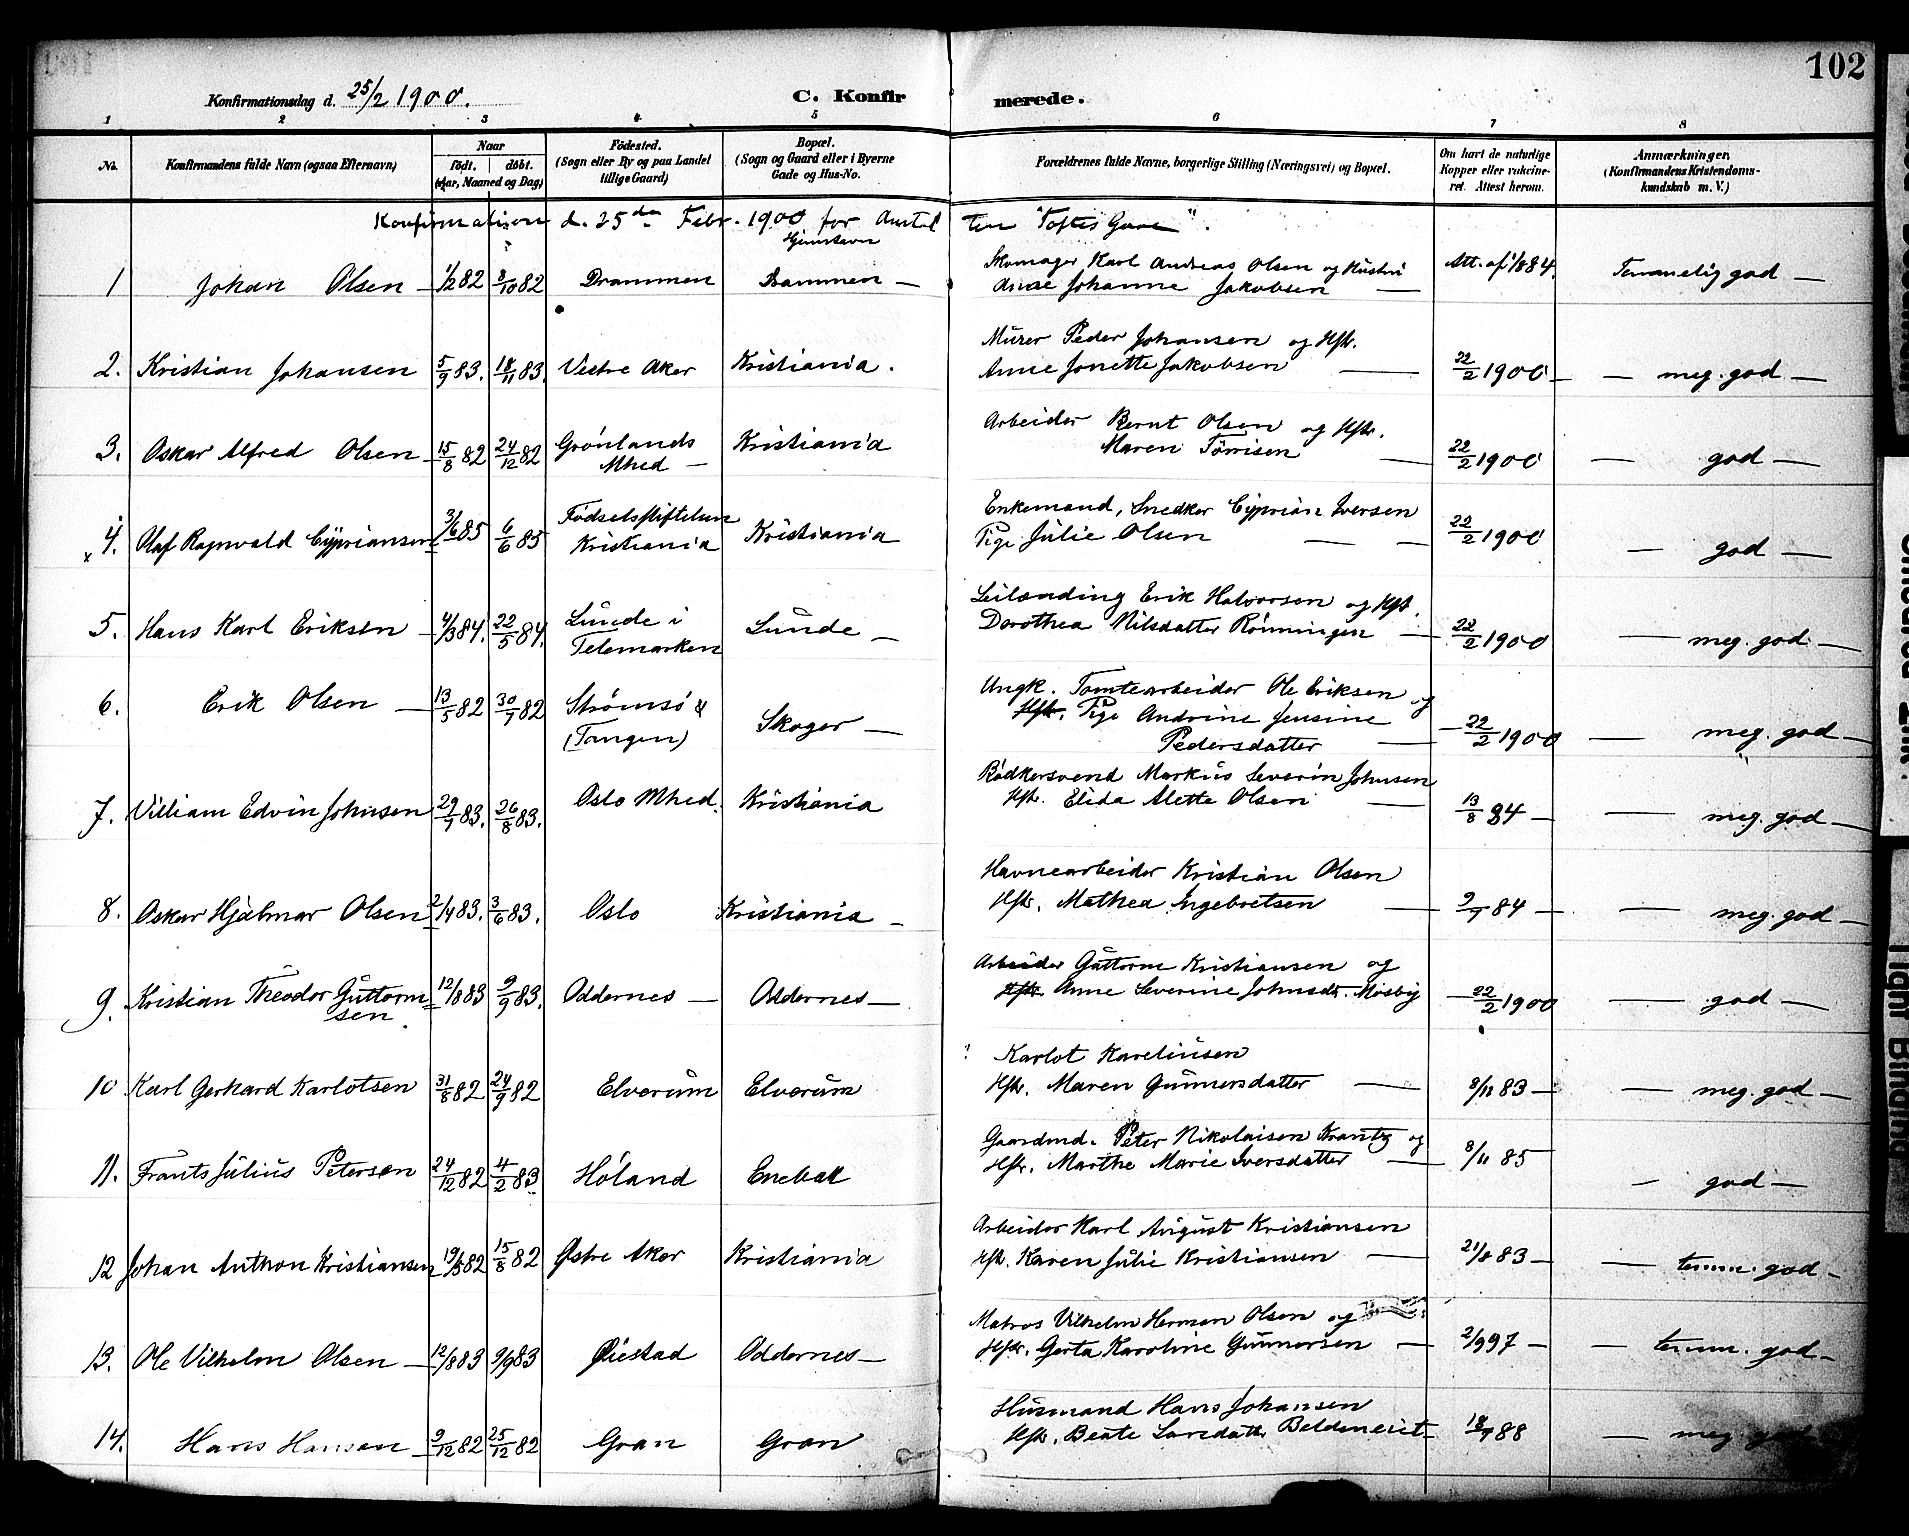 102
Konfirmationsdag d. 25/2 1900. C. Konfirmerede.
1 2 3 4 5 6 7 8
No. Konfirmandens fulde Navn (ogsaa Efternavn) Naar født. døbt. (Aar, Maaned og Dag) Fødested. (Sogn eller By og paa Landet tillige Gaard) Bopæl. (Sogn og Gaard eller i Byerne Gade og Hus-No. Forældrenes fulde Navne, borgerlige Stilling (Næringsvei) og Bopæl. Om havt de naturlige Kopper eller vakcineret. Attest herom. Anmærkninger. (Konfirmandens Kristendomskundskab m. V.)
Konfirmation d. 25de Febr. 1900 for Anstalten "Toftes Gave".
Hjemstavn
1 Johan Olsen 1/2 82 8/10 82 Drammen Drammen — Skomager Karl Andreas Olsen og Hustri
Johanne Jakobsen — Att. af 1/8 84. Temmelig god —
2. Kristian Johansen 5/9 83. 18/11 83. Vestre Aker Kristiania. Murer Peder Johansen og Hstr.
Anne Jonette Jakobsen — 22/2 1900 — meg. god —
3. Oskar Alfred Olsen 15/8 82 24/12 82 Grønlands Mhed — Kristiania Arbeider Bernt Olsen og Hstr.
Maren Tørrisen — 22/2 1900 — god —
x 4. Olaf Ragnvald Cypriansen 3/6 85 6/6 85 Fødselsstiftelsen Kristiania Kristiania Enkemand, Snedker Cyprian Iversen
Pige Julie Olsen — — 22/2 1900 — god —
5. Hans Karl Eriksen 4/3 84. 22/5 84. Lunde i Telemarken Lunde — Leilænding Erik Halvorsen og Hst.
Dorothea Nilsdatter Rønningen — 22/2 1900 — meg. god —
6. Erik Olsen — 13/5 82 30/7 82 Strømsø (Tangen) Skoger — Ungk. Tomtearbeider Ole Eriksen og
Hstr. Pige Andrine Jensine
Pedersdatter — 22/2 1900 — meg. god —
7. Villiam Edvin Johnsen 29/7 83. 26/8 83. Oslo Mhed. Kristiania Bødkersvend Markus Severin Johnsen
Hstr. Elida Alette Olsen — 13/8 84 — meg. god —
8. Oskar Hjalmar Olsen 2/4 83. 3/6 83. Oslo Kristiania — Havnearbeider Kristian Olsen
Hstr. Mathea Ingebretsen — 9/7 84 — meg. god —
9. Kristian Theodor Guttormsen. 12/8 83 9/9 83. Oddernes — Oddernes — Arbeider Guttorm Kristiansen og
Hstr. Anne Severine Johnsdt. Mosby — 22/2 1900 — god —
10 Karl Gerhard Karlotsen 31/8 82 24/9 82 Elverum Elverum Karlot Kareliusen
Hstr. Maren Gunnersdatter — 8/11 83 — meg. god —
11. Frants Julius Petersen 24/12 82 4/2 83 Høland Enebak Gaardmd. Peter Nikolaisen Krantz og
Hstr. Marthe Marie Iversdatter — 8/11 85 — god —
12 Johan Anthon Kristiansen 19/5 82 15/8 82 Østre Aker Kristiania Arbeider Karl August Kristiansen
Hst. Karen Julie Kristiansen — 21/8 83 — temm. god —
13. Ole Vilhelm Olsen — 12/8 83 9/9 83 Øiestad Oddernes — Matros Vilhelm Herman Olsen og
Hstr. Gerta Karoline Gunnersen — 2/9 97 — temm. god —
14. Hans Hansen — 9/12 82 25/12 82 Gran Gran Husmand Hans Johansen
Hstr. Beate Larsdatt. 18/7 88 — meg. god